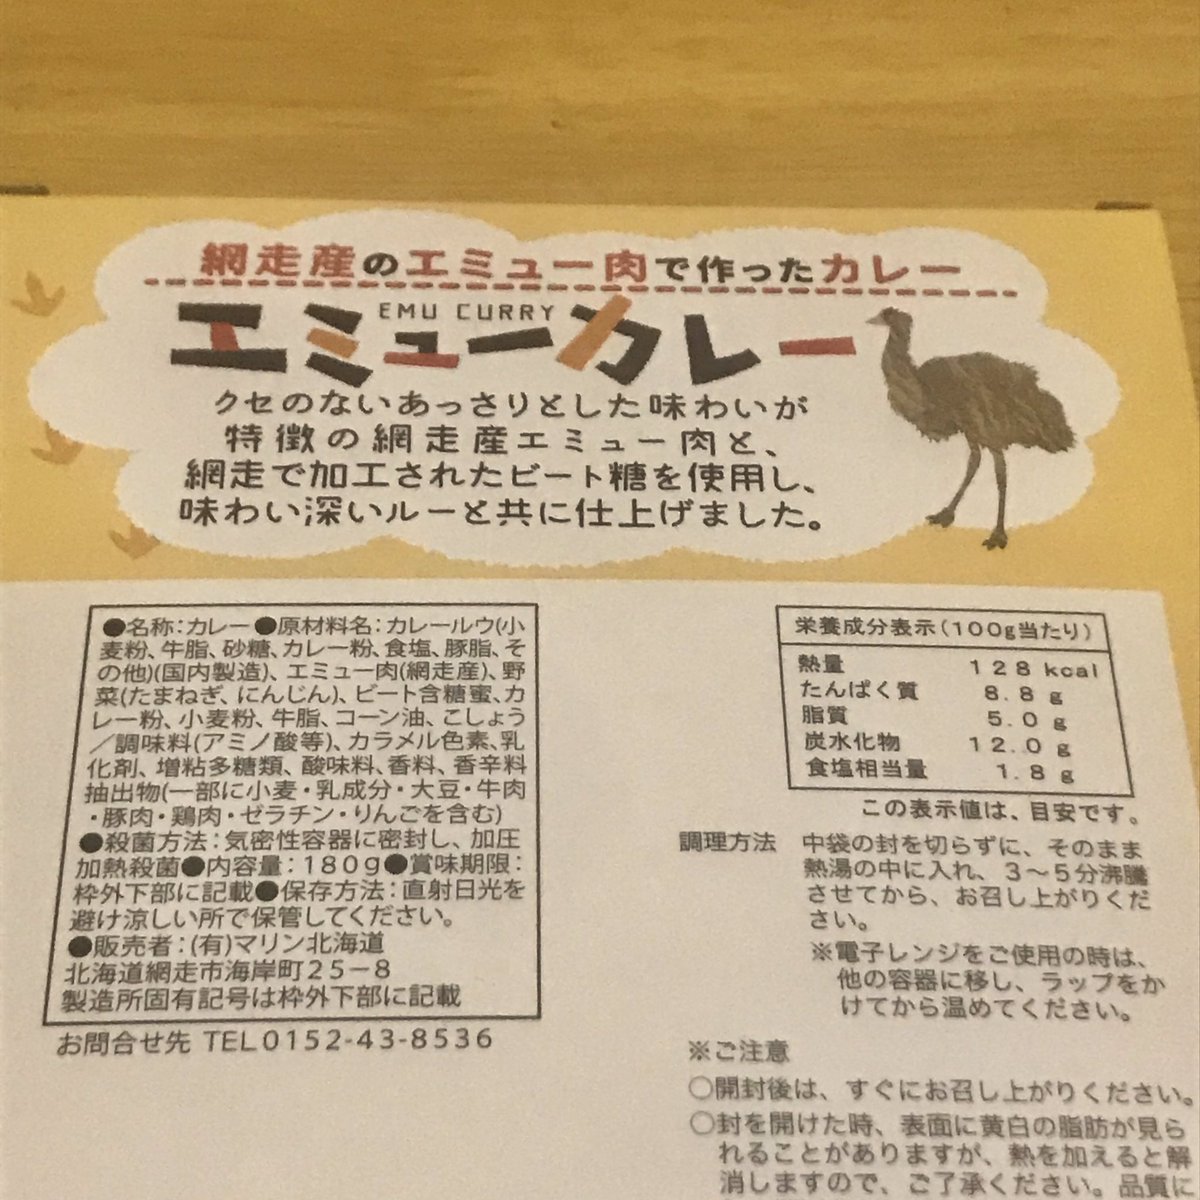 網走産のエミュー肉で作ったカレー
EMU CURRY
エミューカレー
クセのないあっさりとした味わいが
特徴の網走産エミュー肉と、
網走で加工されたビート糖を使用し、
味わい深いルーと共に仕上げました。
●名称:カレー●原材料名:カレールウ(小
麦粉、牛脂、砂糖、カレー粉、食塩、豚脂、そ
の他)(国内製造)、エミュー肉(網走産)、野
菜(たまねぎ、にんじん)、ビート含糖蜜、カ
レー粉、小麦粉、牛脂、コーン油、こしょう
/調味料(アミノ酸等)、カラメル色素、乳
化剤、増粘多糖類、酸味料、香料、香辛料
抽出物(一部に小麦・乳成分・大豆・牛肉
・豚肉・鶏肉・ゼラチン・りんごを含む)
●殺菌方法:気密性容器に密封し、加圧
加熱殺菌●内容量:180g●賞味期限:
枠外下部に記載●保存方法:直射日光を
避け涼しい所で保管してください。
●販売者:(有)マリン北海道
北海道網走市海岸町25-8
製造所固有記号は枠外下部に記載
お問合せ先 TEL0152-43-8536
栄養成分表示(100g当たり)
熱量 128kcal
たんぱく質 8.8g
脂質 5.0g
炭水化物 12.0g
食塩相当量 1.8g
この表示値は、目安です。
調理方法 中袋の封を切らずに、そのまま
熱湯の中に入れ、3〜5分沸騰
させてから、お召し上がりくだ
さい。
※電子レンジをご使用の時は、
他の容器に移し、ラップをか
けてから温めてください。
※ご注意
○開封後は、すぐにお召し上がりください。
○封を開けた時、表面に黄白の脂肪が見ら
れることがありますが、熱を加えると解
消しますので、ご了承ください。品質に